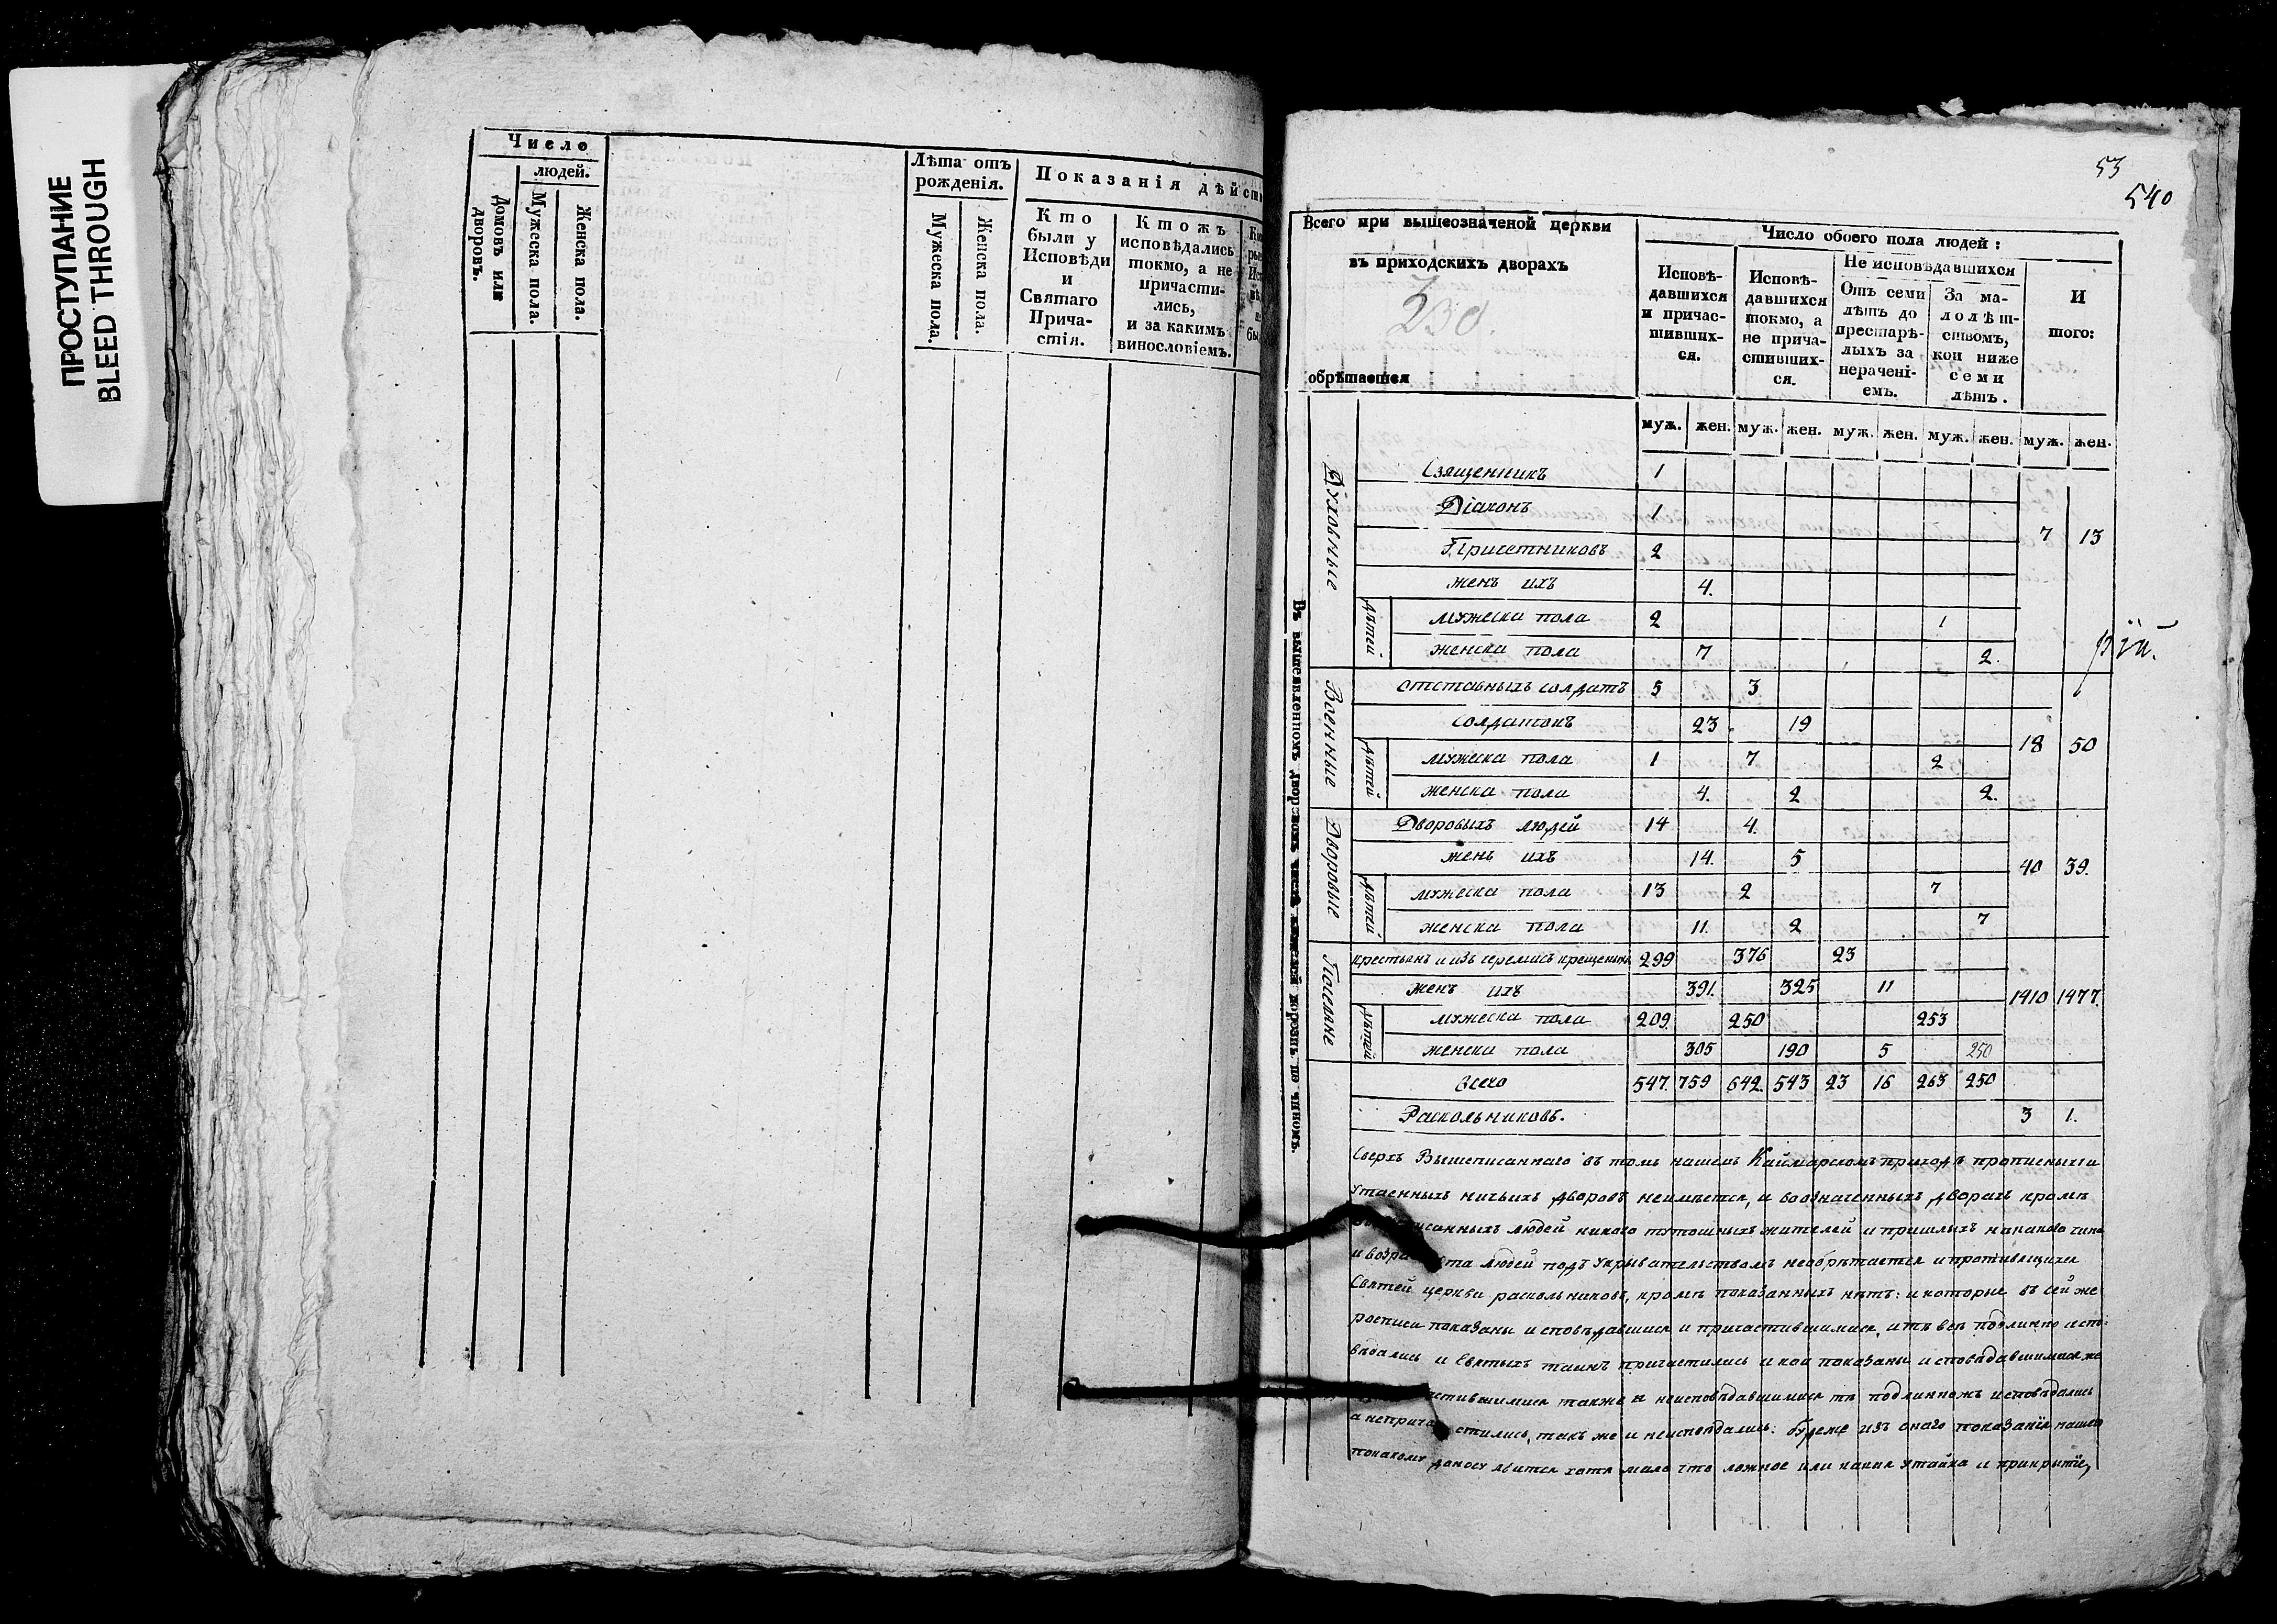 ПРОСТУПАНИЕ
BLEED THROUGH
Число
людей.
Домовъ или дворовъ.
Мужеска пола.
Женска пола.
Лѣта отъ рожденія.
Мужеска пола.
Женска пола.
Показанія дѣйст
Кто были у Исповѣди и Святаго Прича-стія.
Ктожъ исповѣдались токмо, а не причасти-лись, и за какимъ винословіемъ.
53
540
Всего при вышеозначеной церкви
въ приходскихъ дворахъ
230.
обрѣтается
Число обоего пола людей:
Исповѣ-давшихся и причас-тивших-ся.
Исповѣ-давшихся токмо, а не прича-стивших-ся.
Не исповѣдавшихся
Отъ семи лѣтъ до престарѣ-лыхъ за нерачені-емъ.
За ма-лолѣт-ствомъ, кои ниже семи лѣтъ.
И того:
муж. жен. муж. жен. муж. жен. муж. жен. муж. жен.
Духовные
Священникъ 1
Діаконъ 1
Причетниковъ 2
7 13
женъ ихъ 4.
Дѣтей
мужеска пола 2 1
женска пола 7 2.
Военные
отставныхъ солдатъ 5 3
солдатокъ 23 19
18 50
Дѣтей
мужеска пола 1 7 2
женска пола 4. 2 2.
Дворовые
Дворовыхъ людей 14 4.
женъ ихъ 14. 5
40 39.
Дѣтей
мужеска пола 13 2 7
женска пола 11. 2 7
Поселяне
крестьянъ и изъ черемисъ крещеныхъ 299 376 23
женъ ихъ 391. 325 11
1410 1477.
Дѣтей
мужеска пола 209. 250 253
женска пола 305 190 5 250
всего 547. 759 642. 543 23 16 263 250
Раскольниковъ. 3 1.
Сверхъ Вышеписаннаго въ томъ нашемъ Каймарскомъ приходѣ прописныхъ и
утаенныхъ ничьихъ дворовъ неимѣется, и вознаненныхъ дворахъ кромѣ
санныхъ людей никого тутошныхъ жителей и пришлыхъ никакого чина
и возра ста людей подъ укрывательствомъ необрѣтается и противящихся
Святей церкви раскольниковъ, кромѣ показанныхъ нѣтъ: и которые въ сей же
росписи показаны исповѣдавшимися и причастившимися, и тѣ всѣ подлинно испо-
вѣдались и Святыхъ таинъ причастились и кои показаны исповѣдавшимися же
стившимися также и неисповѣдавшимися тѣ подлинножъ исповѣдались
а неприча стились, такъ же и неисповѣдались: будеже изъ онаго показанія нашего
покакому доносу явится хотя мало что ложное или какая утайка и прикрытіе,